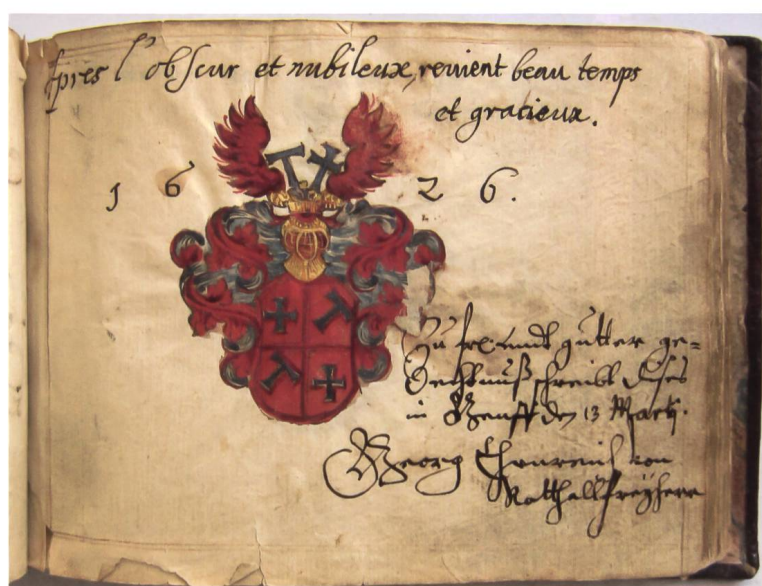 Apres l'obscur et nubileux, reuient beau temps
et gracieux.
1 6 2 6.
Zu fr: undt gutter ge=
dechtnuß schreibt dises
in Genff den 13 Martij.
Georg Ehrnreich von
Rotthall freyherr